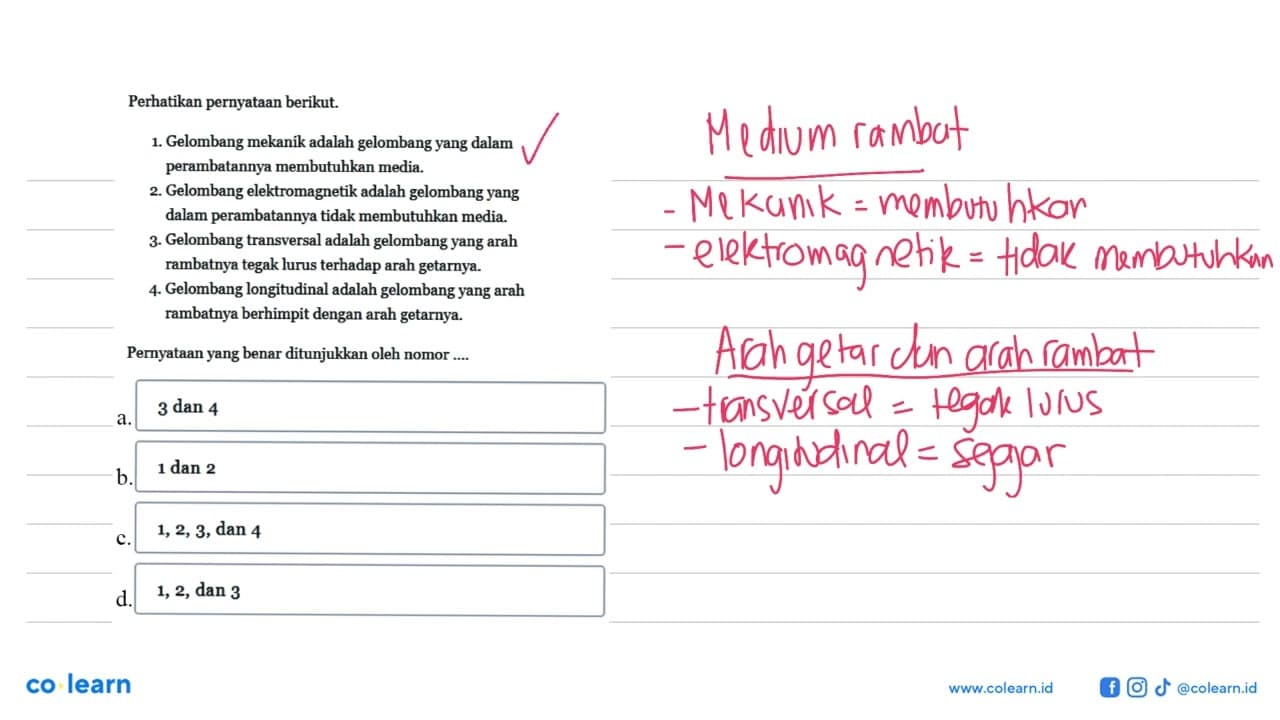 Perhatikan pernyataan berikut.
1. Gelombang mekanik adalah gelombang yang dalam
perambatannya membutuhkan media.
2. Gelombang elektromagnetik adalah gelombang yang
dalam perambatannya tidak membutuhkan media.
3. Gelombang transversal adalah gelombang yang arah
rambatnya tegak lurus terhadap arah getarnya.
4. Gelombang longitudinal adalah gelombang yang arah
rambatnya berhimpit dengan arah getarnya.
Pernyataan yang benar ditunjukkan oleh nomor ....
a. 3 dan 4
b. 1 dan 2
c. 1, 2, 3, dan 4
d. 1, 2, dan 3
Medium rambat
- Mekanik = membutuhkan
- elektromagnetik = tidak membutuhkan
Arah getar dan arah rambat
- transversal = tegak lurus
- longitudinal = sejajar
co learn
www.colearn.id
@colearn.id